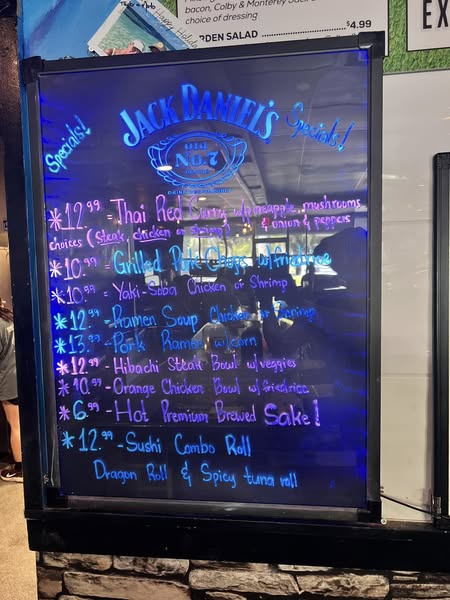 bacon, Colby & Monterey Jack
choice of dressing
RDEN SALAD $4.99
EX
JACK DANIEL'S
OLD
No. 7
Specials!
Specials!
*12.99 = Thai Red Curry w/pineapple, mushrooms
choices (steak, chicken or shrimp) & onion & peppers
*10.99 = Grilled Pork Chops w/friedrice
*10.99 = Yaki-Soba Chicken or Shrimp
*12.99 - Ramen Soup Chicken or Shrimp
*13.99 - Pork Ramen w/corn
*12.99 - Hibachi Steak Bowl w/veggies
*10.99 - Orange Chicken Bowl w/friedrice
*6.99 - Hot Premium Brewed Sake!
*12.99 - Sushi Combo Roll
Dragon Roll & Spicy tuna roll